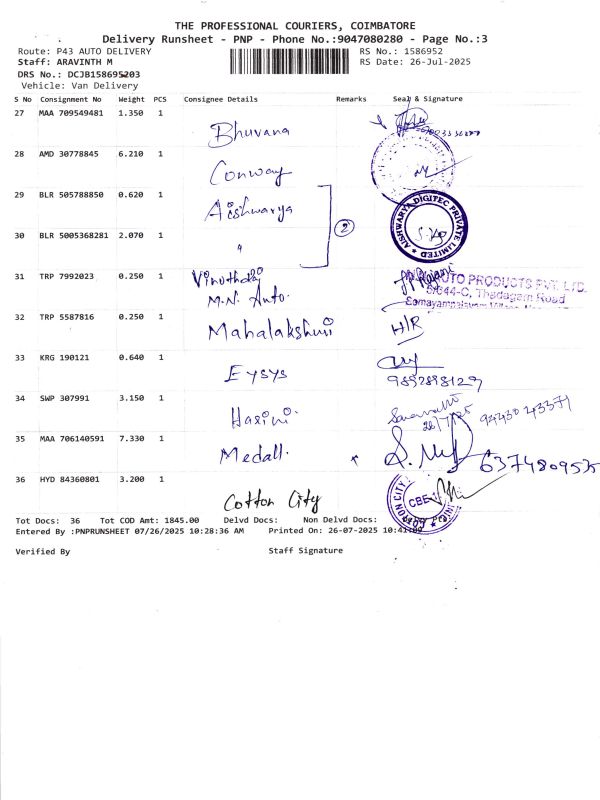 THE PROFESSIONAL COURIERS, COIMBATORE
Delivery Runsheet - PNP - Phone No.:9047080280 - Page No.:3
Route: P43 AUTO DELIVERY RS No.: 1586952
Staff: ARAVINTH M RS Date: 26-Jul-2025
DRS No.: DCJB158695203
Vehicle: Van Delivery
S No Consignment No Weight PCS Consignee Details Remarks Seal & Signature
27 MAA 709549481 1.350 1 Bhuvana
28 AMD 30778845 6.210 1 Conway
29 BLR 505788850 0.620 1 Aishwarya
AISHWARYA DIGITEC PRIVATE LIMITED
2
30 BLR 5005368281 2.070 1 "
31 TRP 7992023 0.250 1
M.N. Auto.
AUTO PRODUCTS PVT. LTD.
5/644-C, Thadagam Road
32 TRP 5587816 0.250 1 Mahalakshmi H/R
33 KRG 190121 0.640 1 Eysys
9892898129
34 SWP 307991 3.150 1 Hasini
26/7/25
35 MAA 706140591 7.330 1 Medall.
36 HYD 84360801 3.200 1 Cotton City
CBE
Tot Docs: 36 Tot COD Amt: 1845.00 Delvd Docs: Non Delvd Docs:
Entered By :PNPRUNSHEET 07/26/2025 10:28:36 AM Printed On: 26-07-2025
Verified By Staff Signature